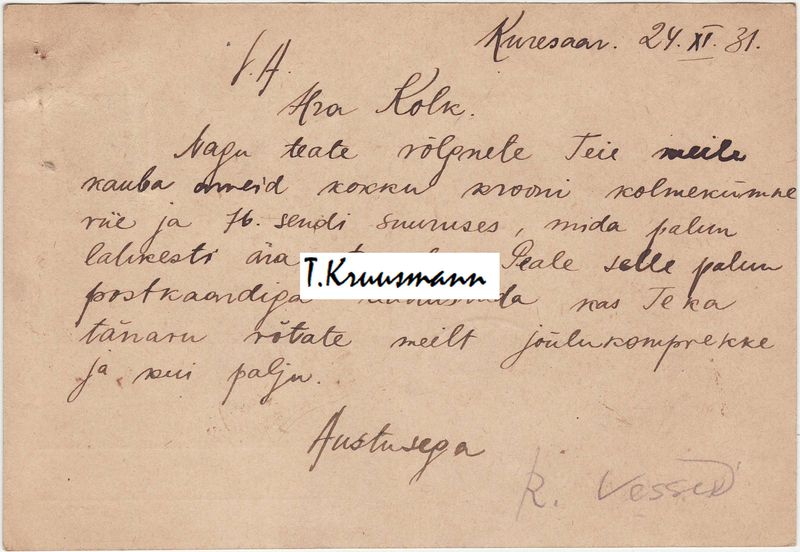 Kuresaar. 24. XI. 31.
J. A.
Hra Kolk.
Nagu teate võlgnete Teie meile
kauba arveid kokku krooni kolmekümne
viie ja 76. sendi suuruses, mida palun
lahkesti ära Peale selle palun
T.Kruusmann
postkaardiga kas Te ka
tänavu võtate meilt jõulukomprekke
ja kui palju.
Austusega
R. Vessel